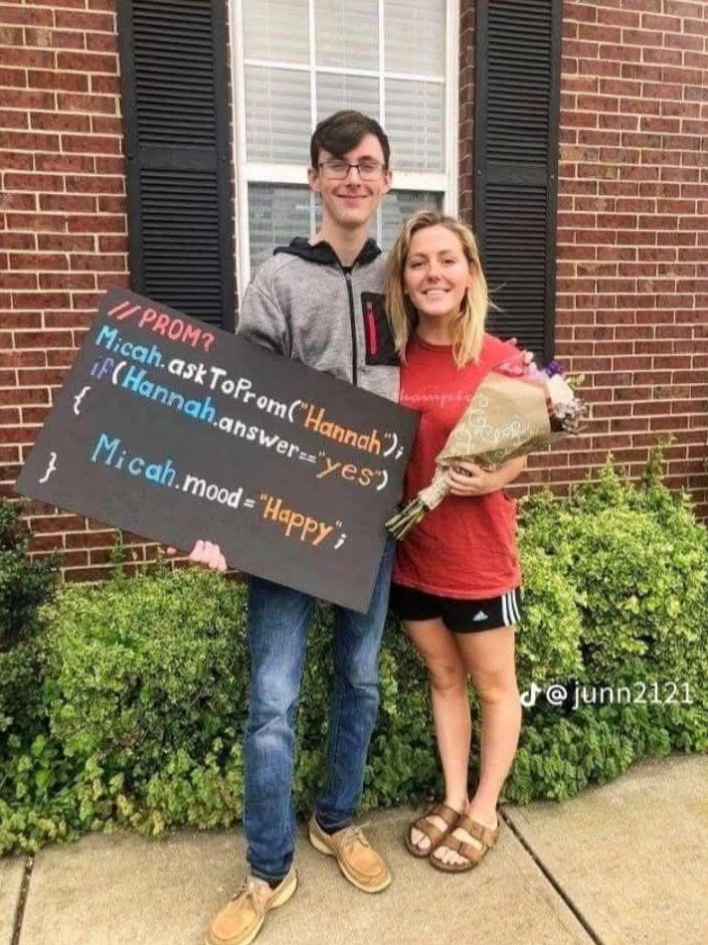 //PROM?
Micah.askToProm("Hannah");
if(Hannah.answer=="yes")
{
Micah.mood="Happy";
}
@junn2121